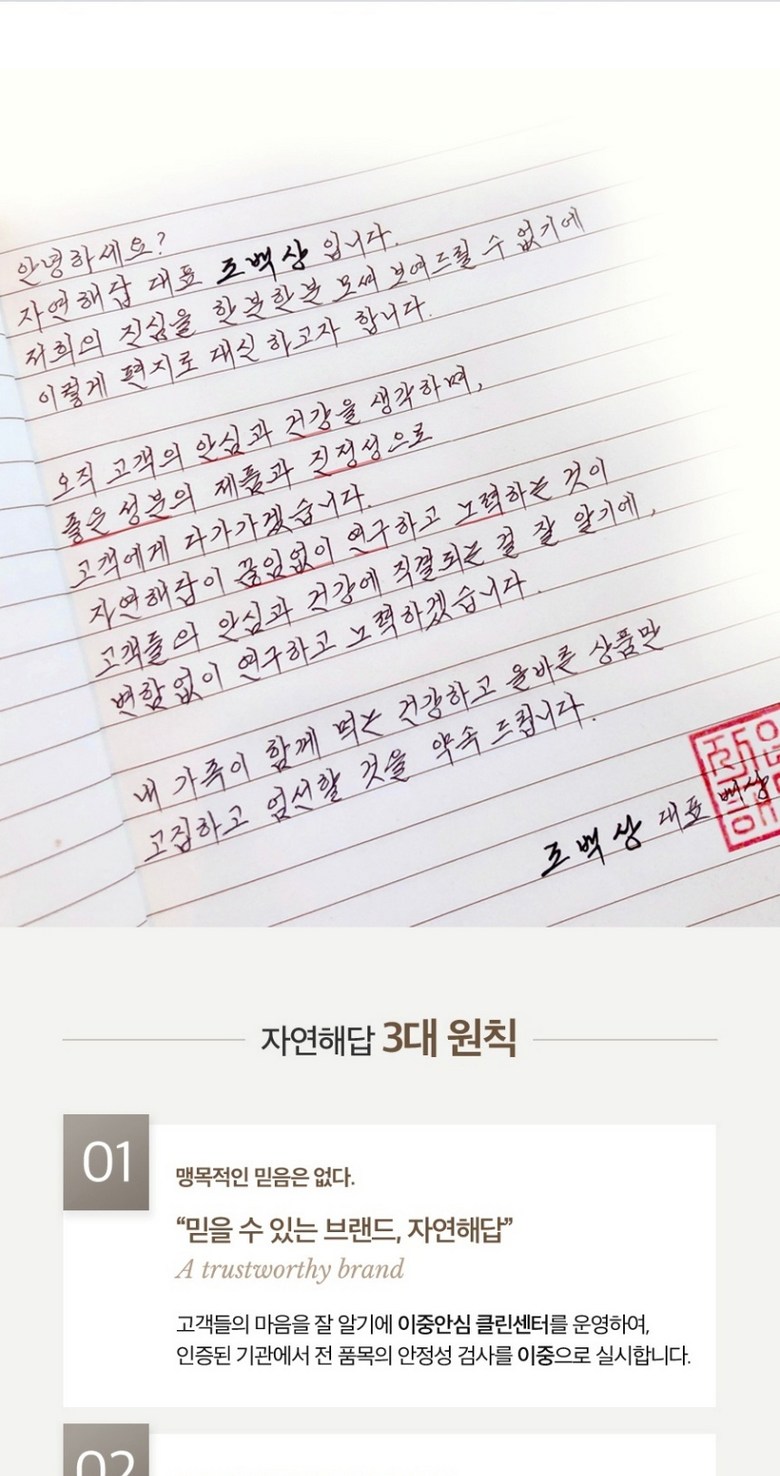 안녕하세요?
자연해답 대표 조백상 입니다.
저희의 진심을 한분한분 모셔 보여드릴 수 없기에
이렇게 편지로 대신 하고자 합니다.
오직 고객의 안심과 건강을 생각하며,
좋은 성분의 제품과 진정성으로
고객에게 다가가겠습니다.
자연해답이 끊임없이 연구하고 노력하는 것이
고객들의 안심과 건강에 직결되는 걸 잘 알기에,
변함없이 연구하고 노력하겠습니다.
내 가족이 함께 먹는 건강하고 올바른 상품만
고집하고 엄선할 것을 약속 드립니다.
조백상 대표
자연해답 3대 원칙
01
맹목적인 믿음은 없다.
“믿을 수 있는 브랜드, 자연해답”
A trustworthy brand
고객들의 마음을 잘 알기에 이중안심 클린센터를 운영하여,
인증된 기관에서 전 품목의 안정성 검사를 이중으로 실시합니다.
02